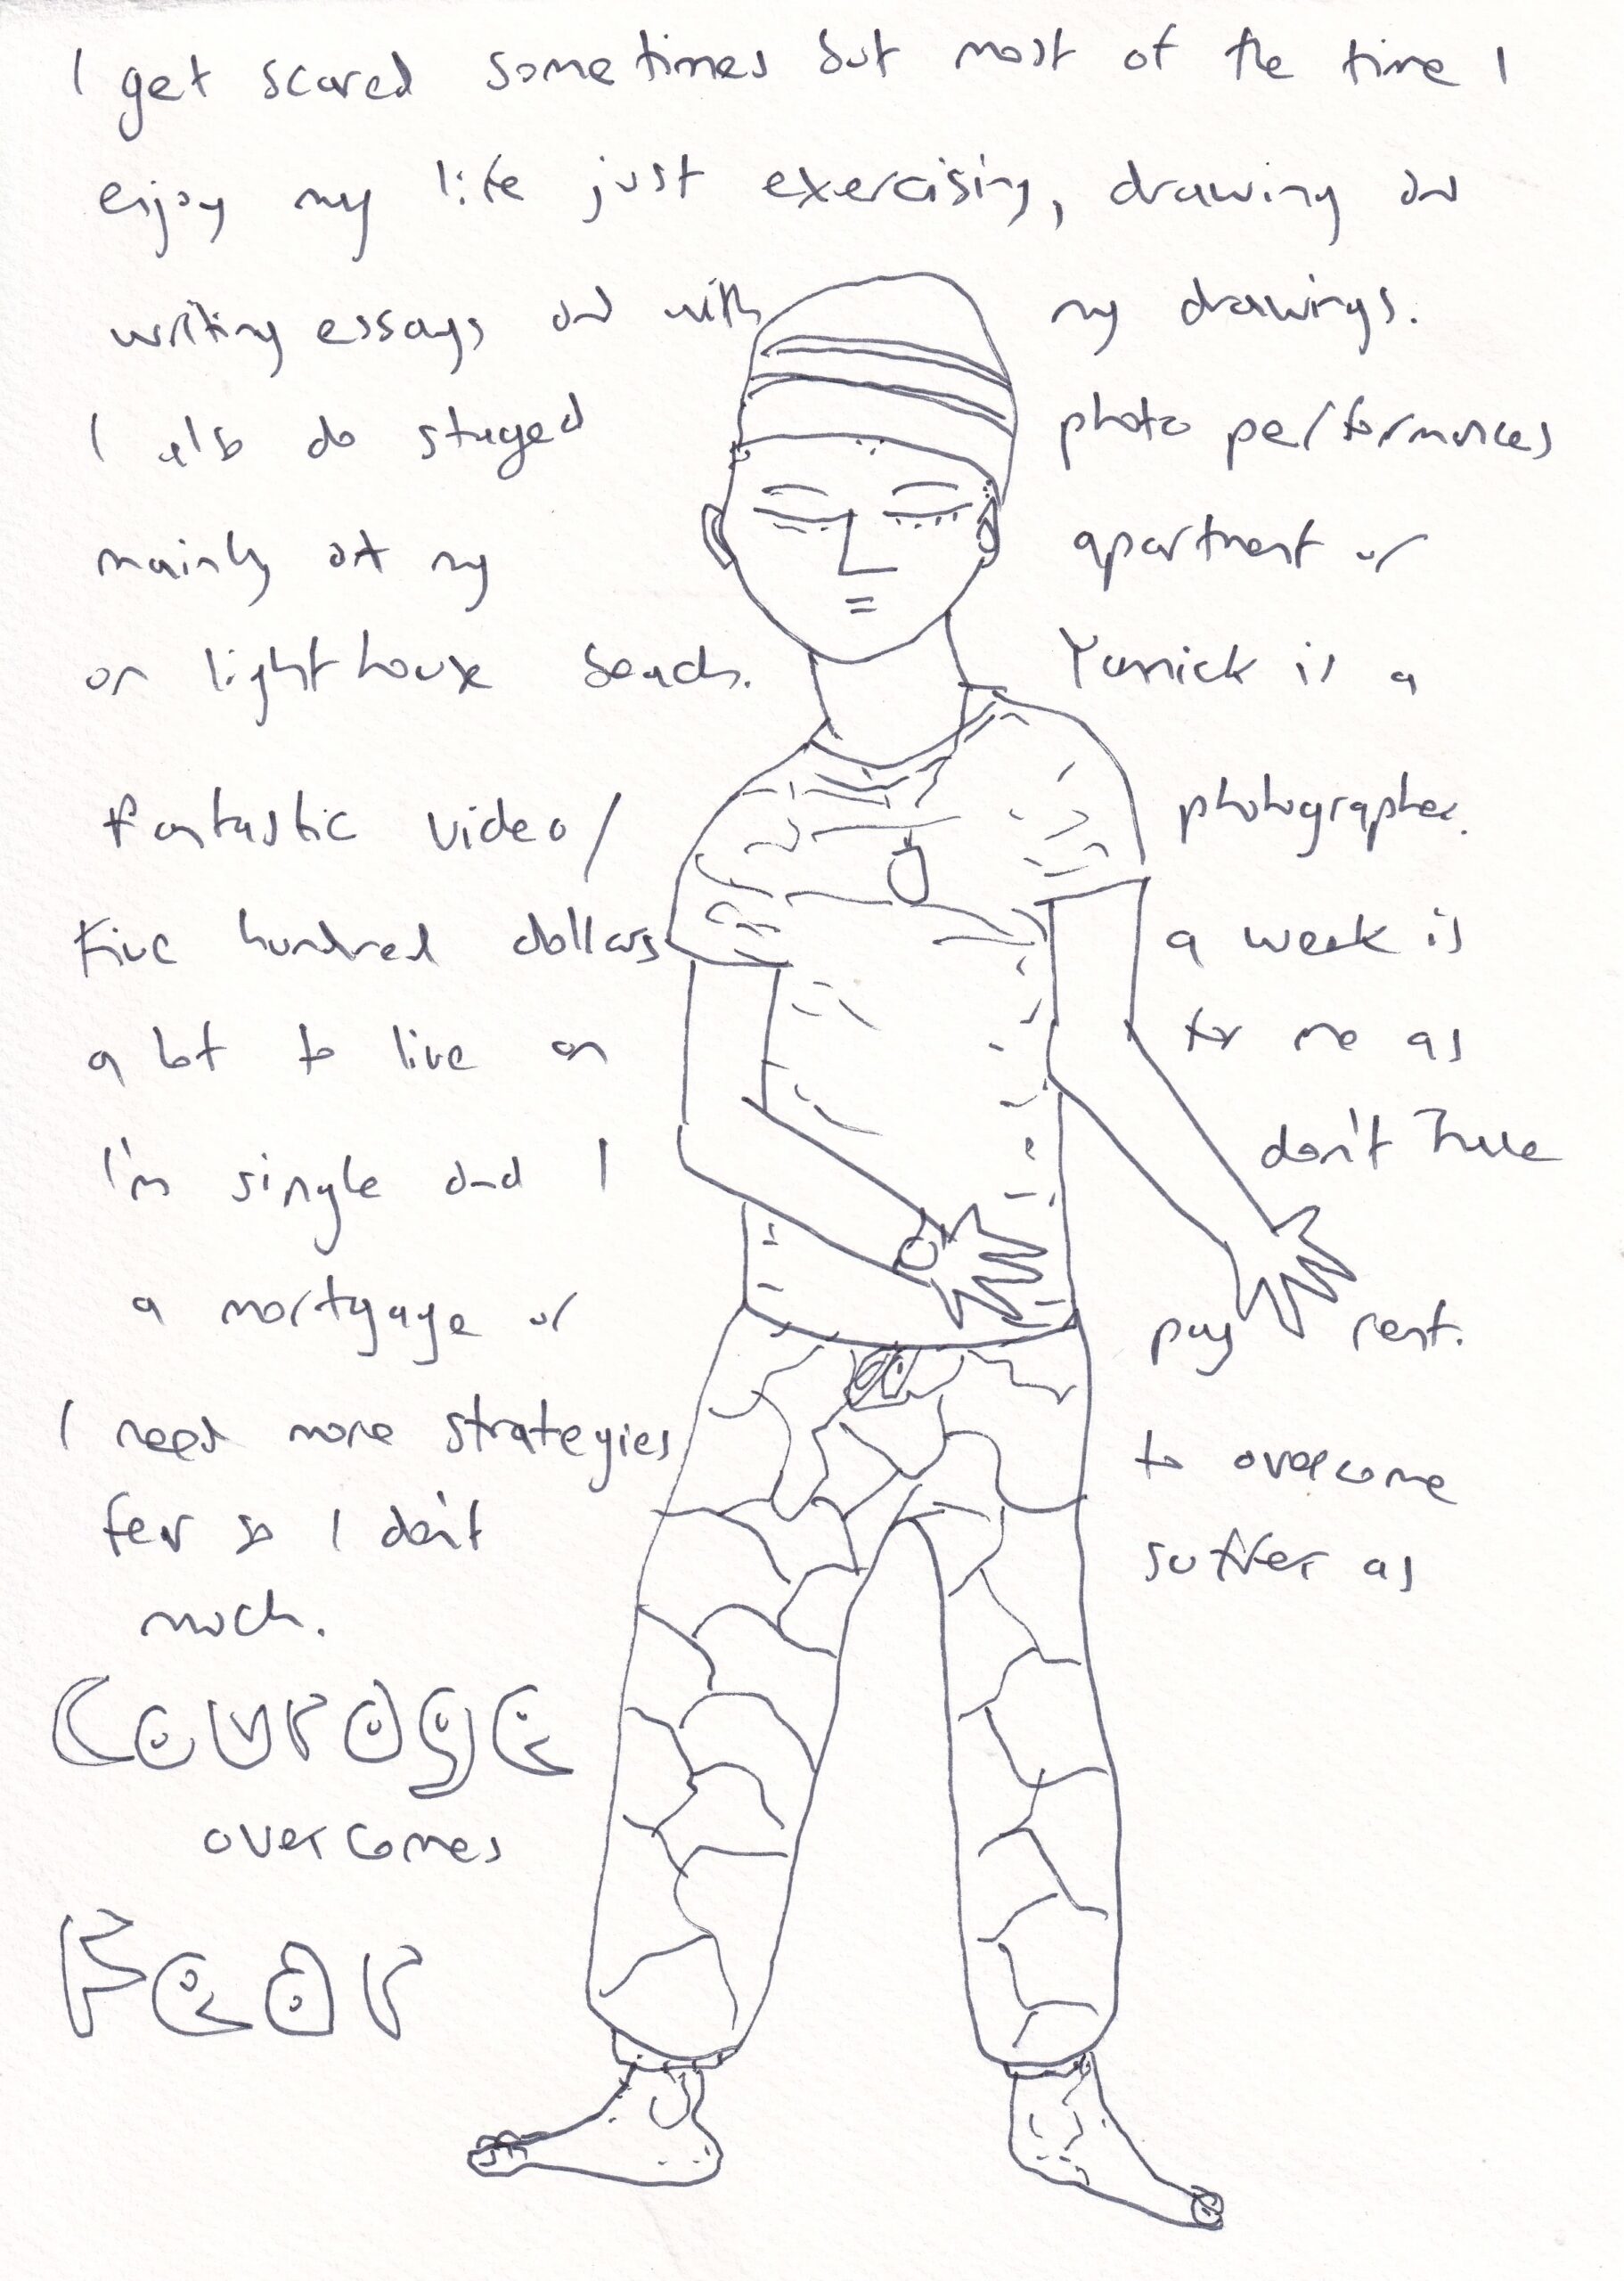 I get scared sometimes but most of the time I
enjoy my life just exercising, drawing and
writing essays and with my drawings.
I also do staged photo performances
mainly at my apartment or
on lighthouse beach. Yannick is a
fantastic video/ photographer.
Five hundred dollars a week is
a lot to live on for me as
I'm single and I don't have
a mortgage or pay rent.
I need more strategies to overcome
fear so I don't suffer as
much.
Courage
overcomes
Fear